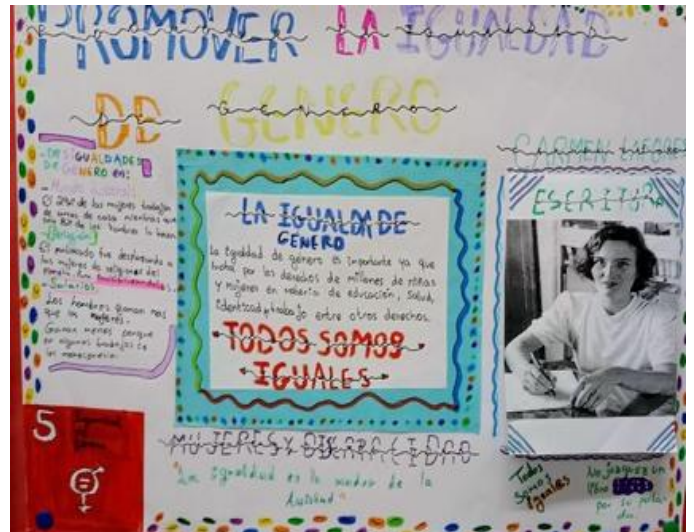 PROMOVER LA IGUALDAD
DE GENERO
- DESIGUALDADES
DE GENERO en:
- Mundo laboral:
de amas de casa mientras que
solo los hombres lo hacen
El patriarcado fue
a las mujeres
- Salarios
Los hombres ganan mas
que las mujeres.
Ganan menos porque
en algunos trabajos se
las menosprecia.
LA IGUALDA DE
GENERO
La igualdad de género es importante ya que
lucha por los derechos de millones de niñas
y mujeres en materia de educación, salud,
identidad, trabajo entre otros derechos.
TODOS SOMOS
IGUALES
CARMEN LAFORET
ESCRITORA
5
MUJERES Y DISCAPACIDAD
"La igualdad es la madre de la
Todos
somos
iguales
No juzgues un
libro
por su porta-
da.